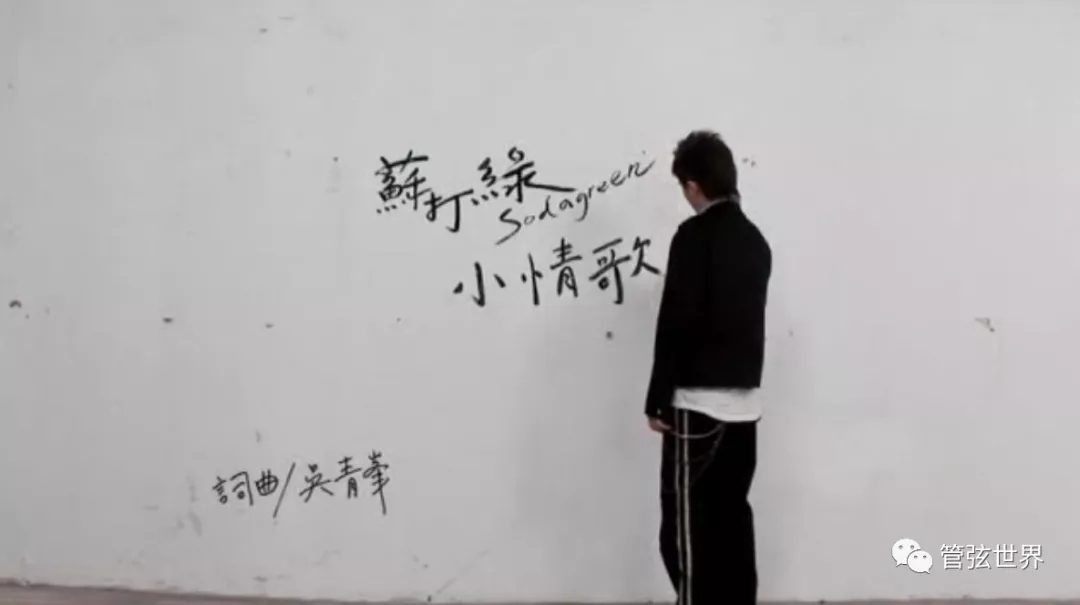 蘇打綠
Sodagreen
小情歌
詞曲/吳青峯
管弦世界